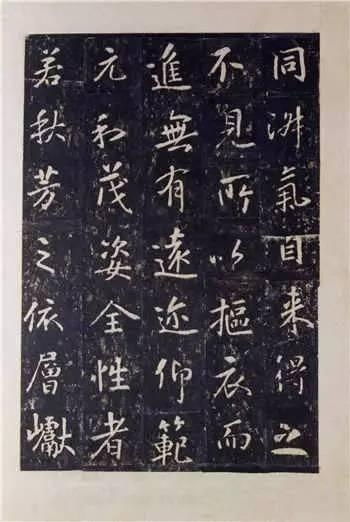 同氣自来得之
不見所以摳衣而
進無有遠迩仰範
元和茂姿全性者
若秋芳之依層巘